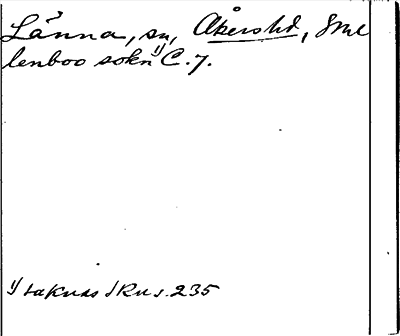 Länna, sn, Åkers hd, Sml
lenboo sokn 1) C. 7.
1) saknas i Ru s. 235